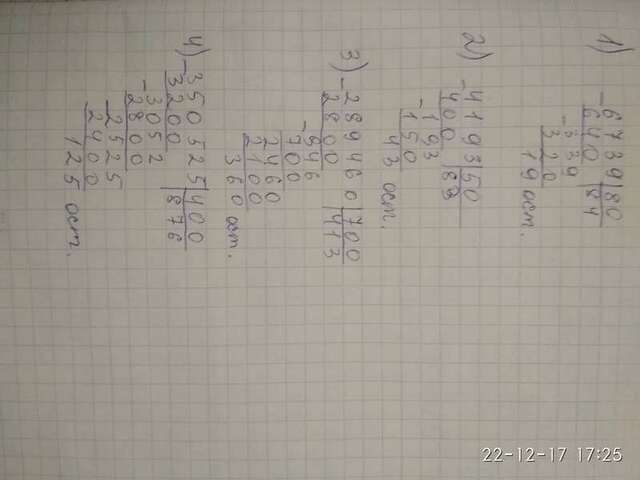 1)
-6739|80
640|84
-339
320
19 ост.
2)
-4193|50
400|83
-193
150
43 ост.
3)
-289460|700
2800|413
-946
700
2460
2100
360 ост.
4)
-350525|400
3200|876
-3052
2800
-2525
2400
125 ост.
22-12-17 17:25